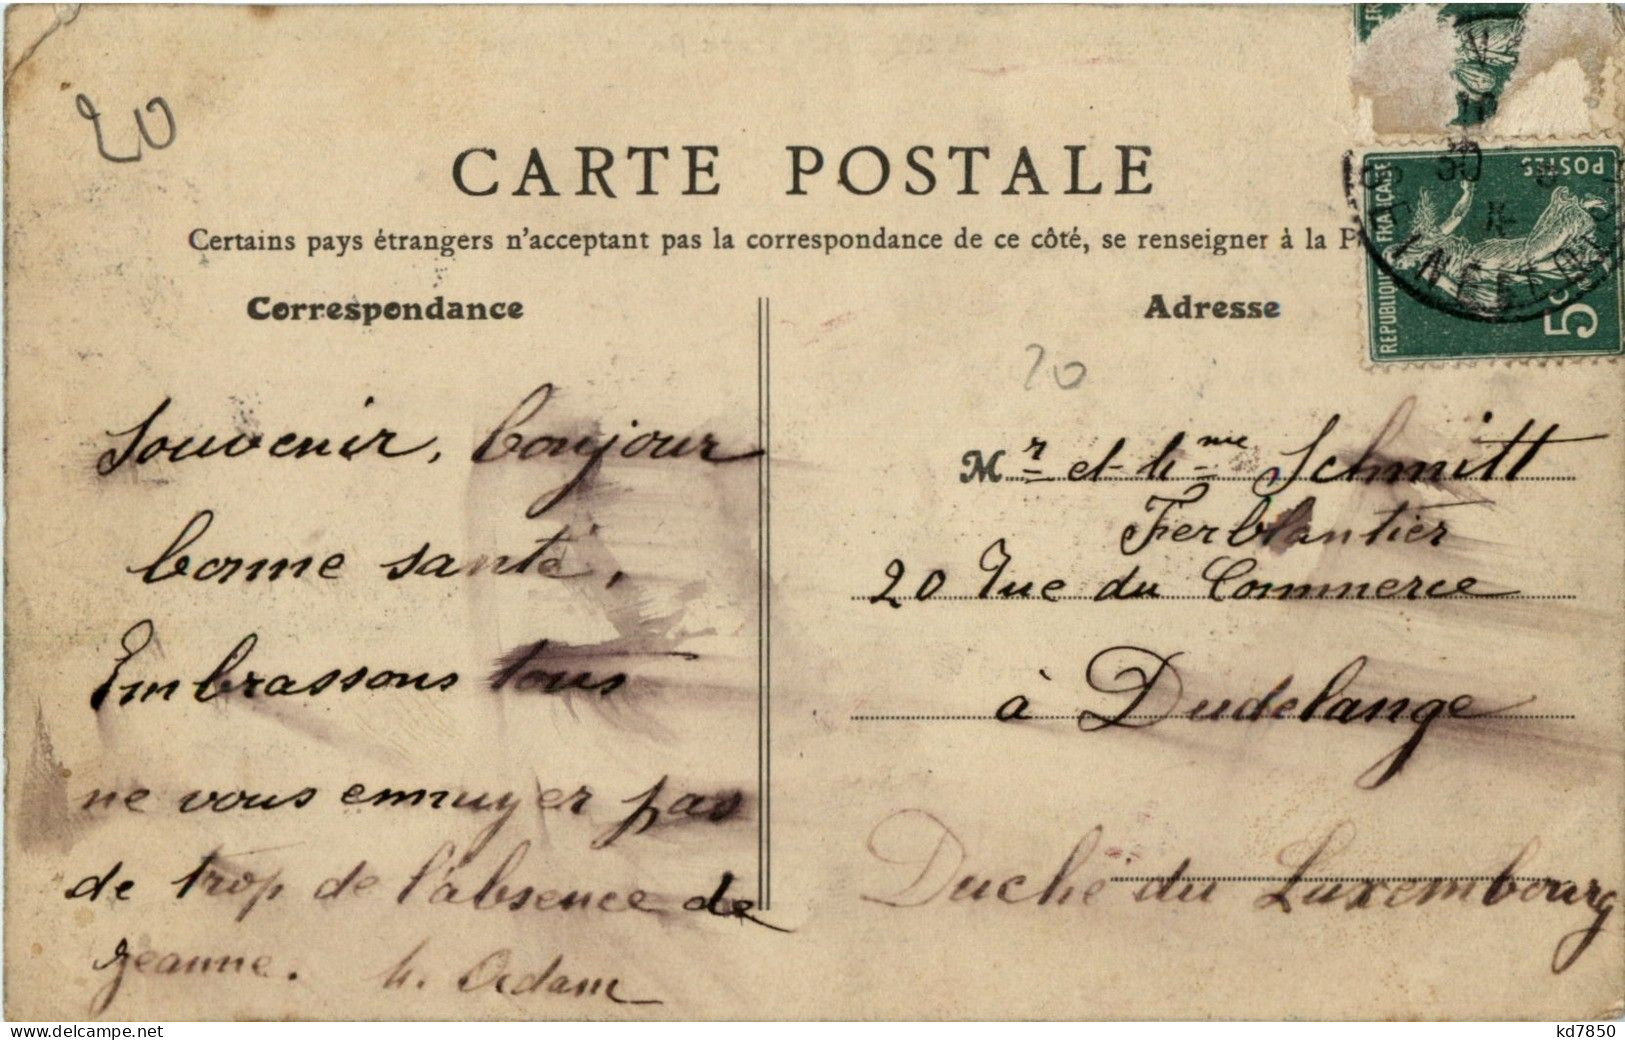 20
CARTE POSTALE
Certains pays étrangers n'acceptant pas la correspondance de ce côté, se renseigner à la
Correspondance
Souvenir, bonjour
bonne santé,
Embrassons tous
ne vous ennuyer pas
de trop de l'absence de
Jeanne. h. Adam
Adresse
20
Mr et Mme Schmitt
Ferblantier
20 Rue du Commerce
à Dudelange
Duché du Luxembourg
REPUBLIQUE FRANÇAISE
POSTES
5c
kd7850